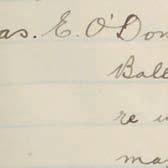 as. E. O'Don
Bale
re
ma